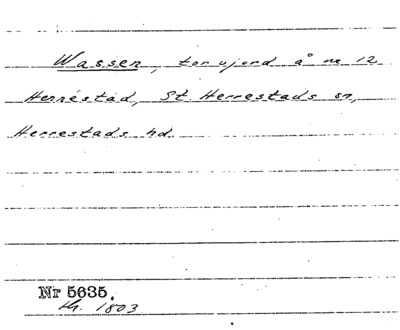 Wassen, torvjord å nr 12
Herrestad, St Herrestads sn,
Herrestads hd.
Nr 5635.
th. 1803